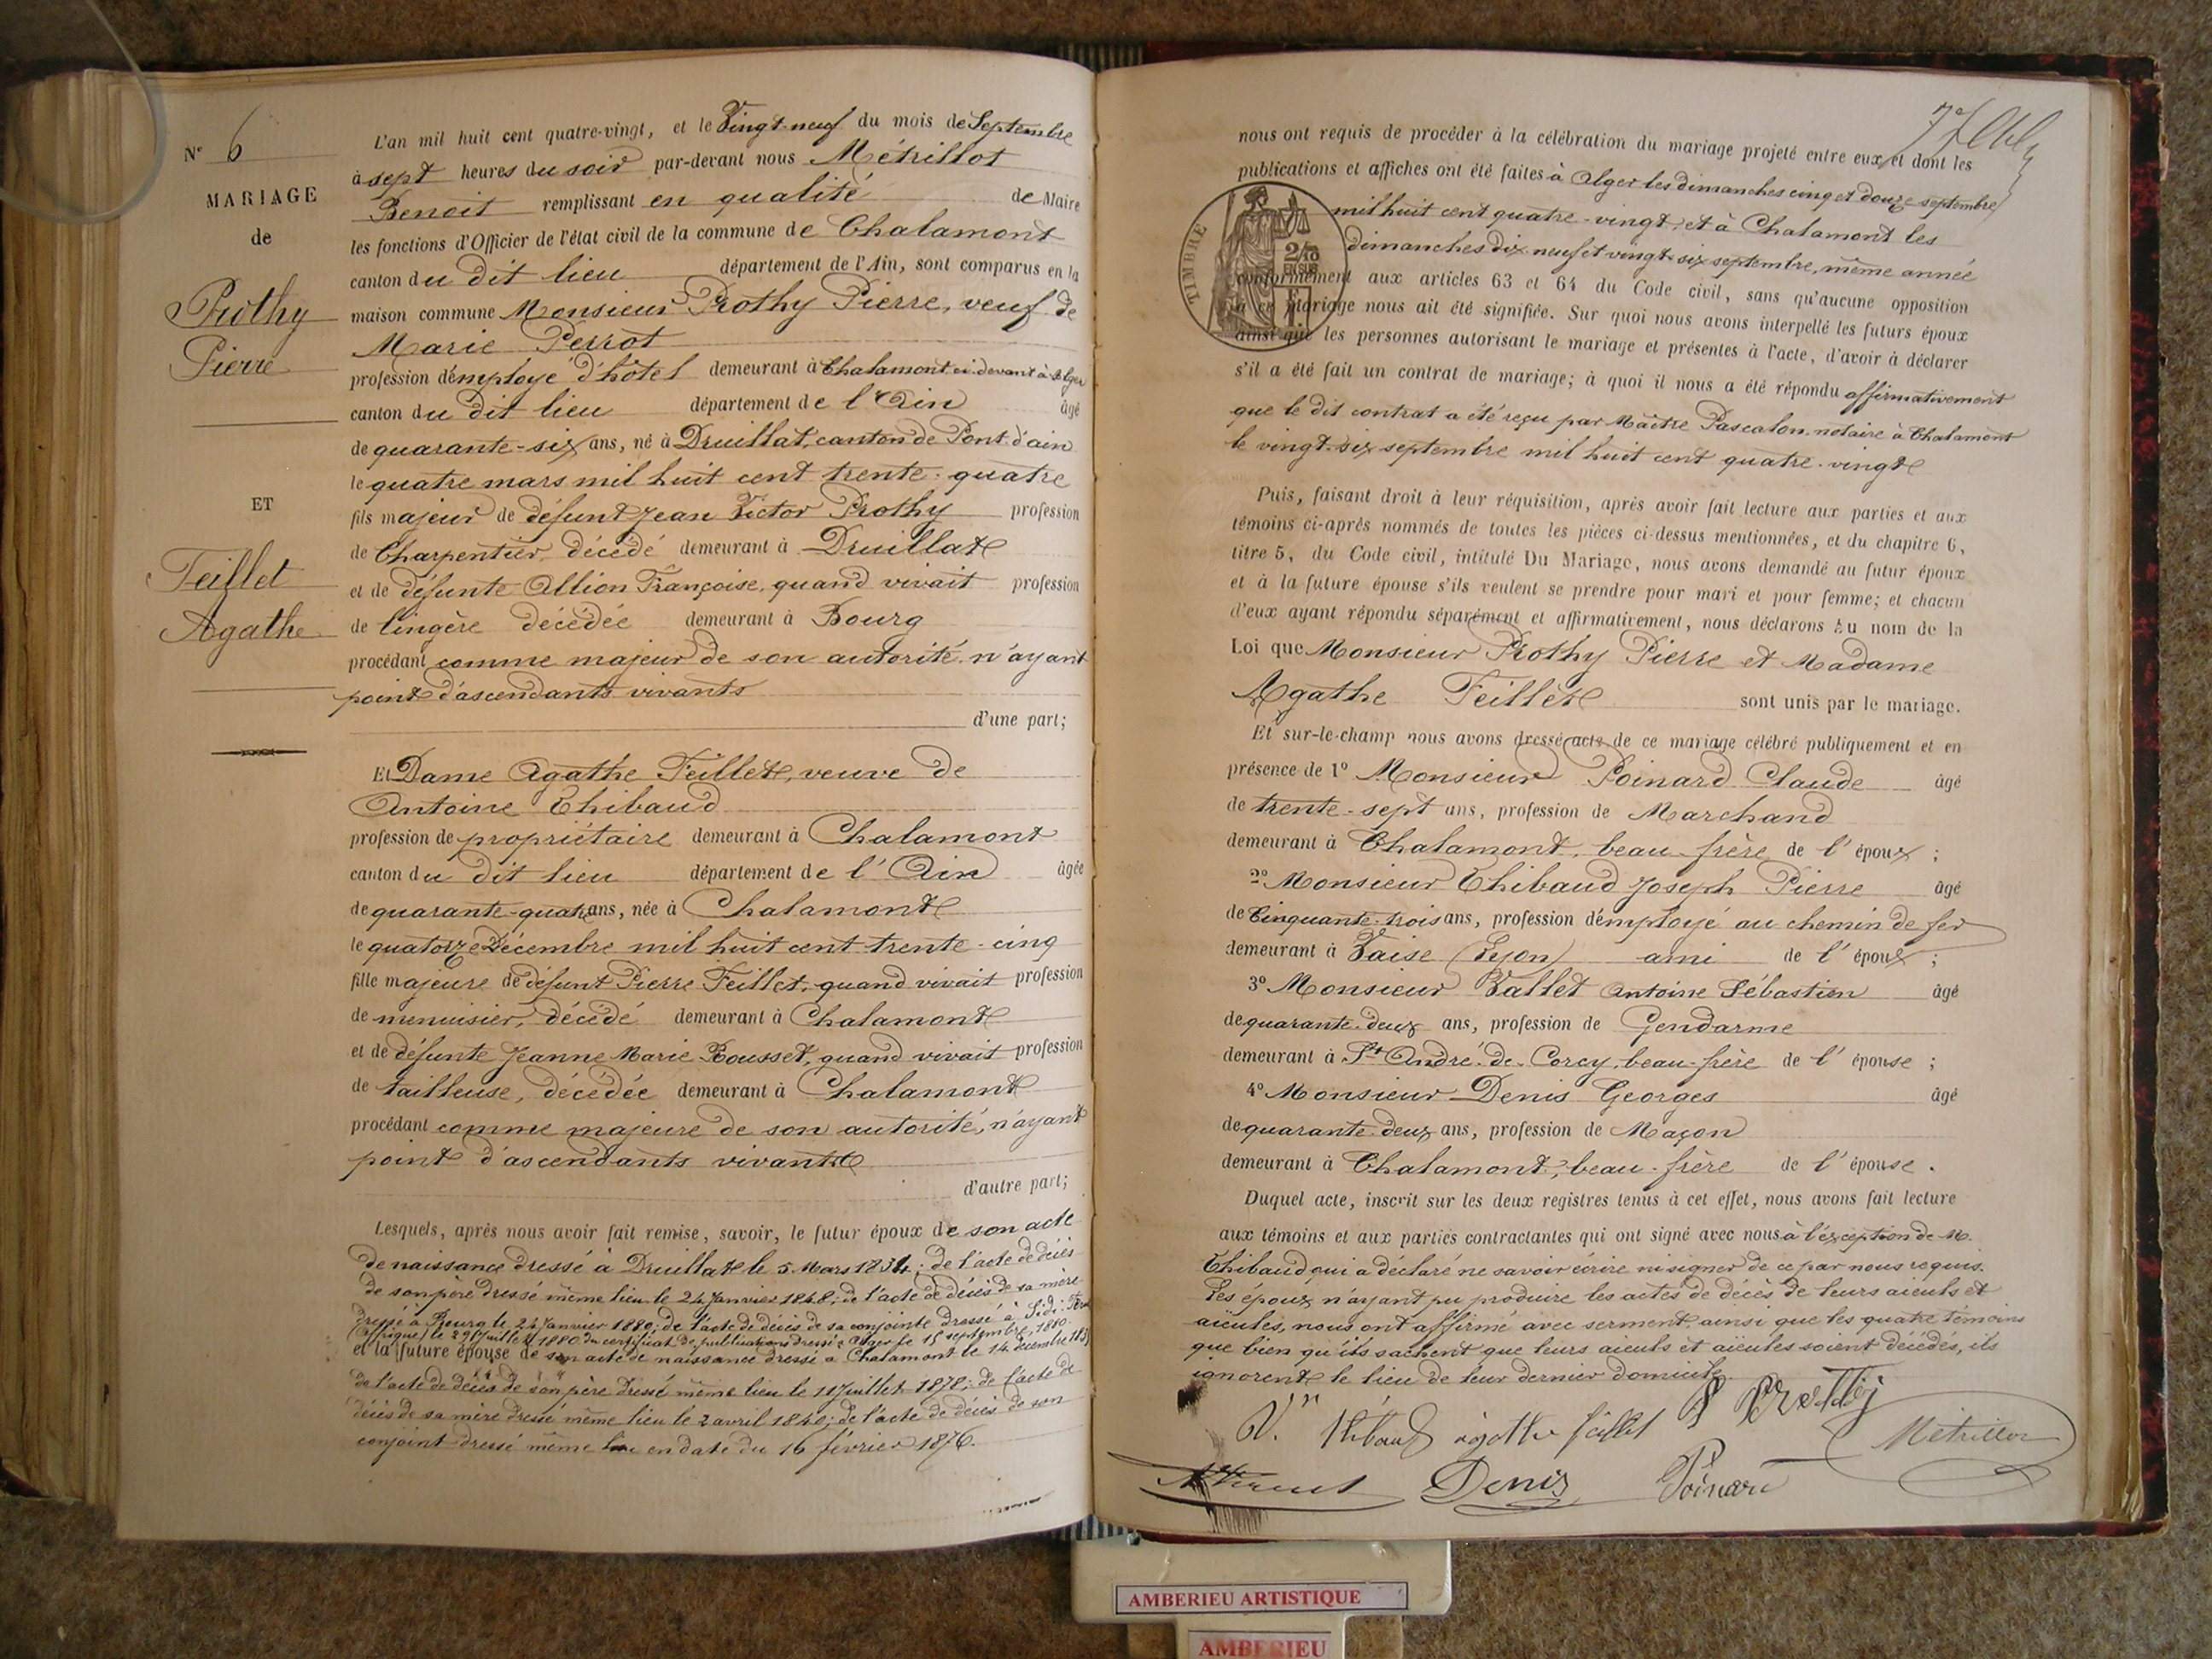 N° 6
MARIAGE
de
Prothy
Pierre
ET
Feillet
Agathe
L'an mil huit cent quatre-vingt, et le Vingt-neuf du mois de Septembre
à sept heures du soir par-devant nous Métrillot
Benoit remplissant en qualité de Maire
les fonctions d'Officier de l'état civil de la commune de Chalamont
canton du dit lieu département de l'Ain, sont comparus en la
maison commune Monsieur Prothy Pierre, veuf de
Marie Perrot
profession d'employé d'hôtel demeurant à Chalamont ci-devant à Alger
canton du dit lieu département de l'Ain âgé
de quarante-six ans, né à Druillat, canton de Pont-d'ain
le quatre mars mil huit cent trente-quatre
fils majeur de défunt Jean Victor Prothy profession
de Charpentier, décédé demeurant à Druillat
et de défunte Allion Françoise, quand vivait profession
de lingère décédée demeurant à Bourg
procédant comme majeur de son autorité n'ayant
point d'ascendants vivants
d'une part;
Et Dame Agathe Feillet, veuve de
Antoine Thibaud
profession de propriétaire demeurant à Chalamont
canton du dit lieu département de l'Ain âgée
de quarante-quatre ans, née à Chalamont
le quatorze Décembre mil huit cent trente-cinq
fille majeure de défunt Pierre Feillet, quand vivait profession
de menuisier, décédé demeurant à Chalamont
et de défunte Jeanne Marie Rousset, quand vivait profession
de tailleuse, décédée demeurant à Chalamont
procédant comme majeure de son autorité, n'ayant
point d'ascendants vivants
d'autre part;
Lesquels, après nous avoir fait remise, savoir, le futur époux de son acte
de naissance dressé à Druillat le 5 Mars 1834; de l'acte de décès
de son père dressé même lieu le 24 Janvier 1848; de l'acte de décès de sa mère
dressé à Bourg le 24 Janvier 1880; de l'acte de décès de sa conjointe dressé à Sidi
(Affrique) le 29 Juillet 1880 du certificat de publications dressé à Alger le 15 septembre 1880
et la future épouse de son acte de naissance dressé à Chalamont le 14 décembre
de l'acte de décès de son père dressé même lieu le 11 Juillet 1878; de l'acte de
décès de sa mère dressé même lieu le 2 avril 1840; de l'acte de décès de son
conjoint dressé même lieu en date du 16 février 1876.
nous ont requis de procéder à la célébration du mariage projeté entre eux, et dont les
publications et affiches ont été faites à Alger les dimanches cinq et douze septembre
mil huit cent quatre-vingt, et à Chalamont les
dimanches dix-neuf et vingt-six septembre, même année
TIMBRE
conformément aux articles 63 et 64 du Code civil, sans qu'aucune opposition
à ce mariage nous ait été signifiée. Sur quoi nous avons interpellé les futurs époux
ainsi que les personnes autorisant le mariage et présentes à l'acte, d'avoir à déclarer
s'il a été fait un contrat de mariage; à quoi il nous a été répondu affirmativement
que le dit contrat a été reçu par Maître Pascalon notaire à Chalamont
le vingt-six septembre mil huit cent quatre-vingt
Puis, faisant droit à leur réquisition, après avoir fait lecture aux parties et aux
témoins ci-après nommés de toutes les pièces ci-dessus mentionnées, et du chapitre 6,
titre 5, du Code civil, intitulé Du Mariage, nous avons demandé au futur époux
et à la future épouse s'ils veulent se prendre pour mari et pour femme; et chacun
d'eux ayant répondu séparément et affirmativement, nous déclarons au nom de la
Loi que Monsieur Prothy Pierre et Madame
Agathe Feillet sont unis par le mariage.
Et sur-le-champ nous avons dressé acte de ce mariage célébré publiquement et en
présence de 1° Monsieur Poinard Claude âgé
de trente-sept ans, profession de Marchand
demeurant à Chalamont, beau-frère de l'époux ;
2° Monsieur Thibaud Joseph Pierre âgé
de Cinquante-trois ans, profession d'employé au chemin de fer
demeurant à Vaise (Lyon) ami de l'époux ;
3° Monsieur Vallet Antoine Sébastien âgé
de quarante-deux ans, profession de Gendarme
demeurant à St André-de-Corcy, beau-frère de l'épouse ;
4° Monsieur Denis Georges âgé
de quarante-deux ans, profession de Maçon
demeurant à Chalamont, beau-frère de l'épouse.
Duquel acte, inscrit sur les deux registres tenus à cet effet, nous avons fait lecture
aux témoins et aux parties contractantes qui ont signé avec nous à l'exception de M.
Thibaud qui a déclaré ne savoir écrire ni signer de ce par nous requis.
Les époux n'ayant pu produire les actes de décès de leurs aïeuls et
aïeules, nous ont affirmé avec serment, ainsi que les quatre témoins
que bien qu'ils sachent que leurs aïeuls et aïeules soient décédés, ils
ignorent le lieu de leur dernier domicile
Vve Thibaud agathe feillet P Prothy Métrillot
Denis Poinard
AMBERIEU ARTISTIQUE
AMBERIEU